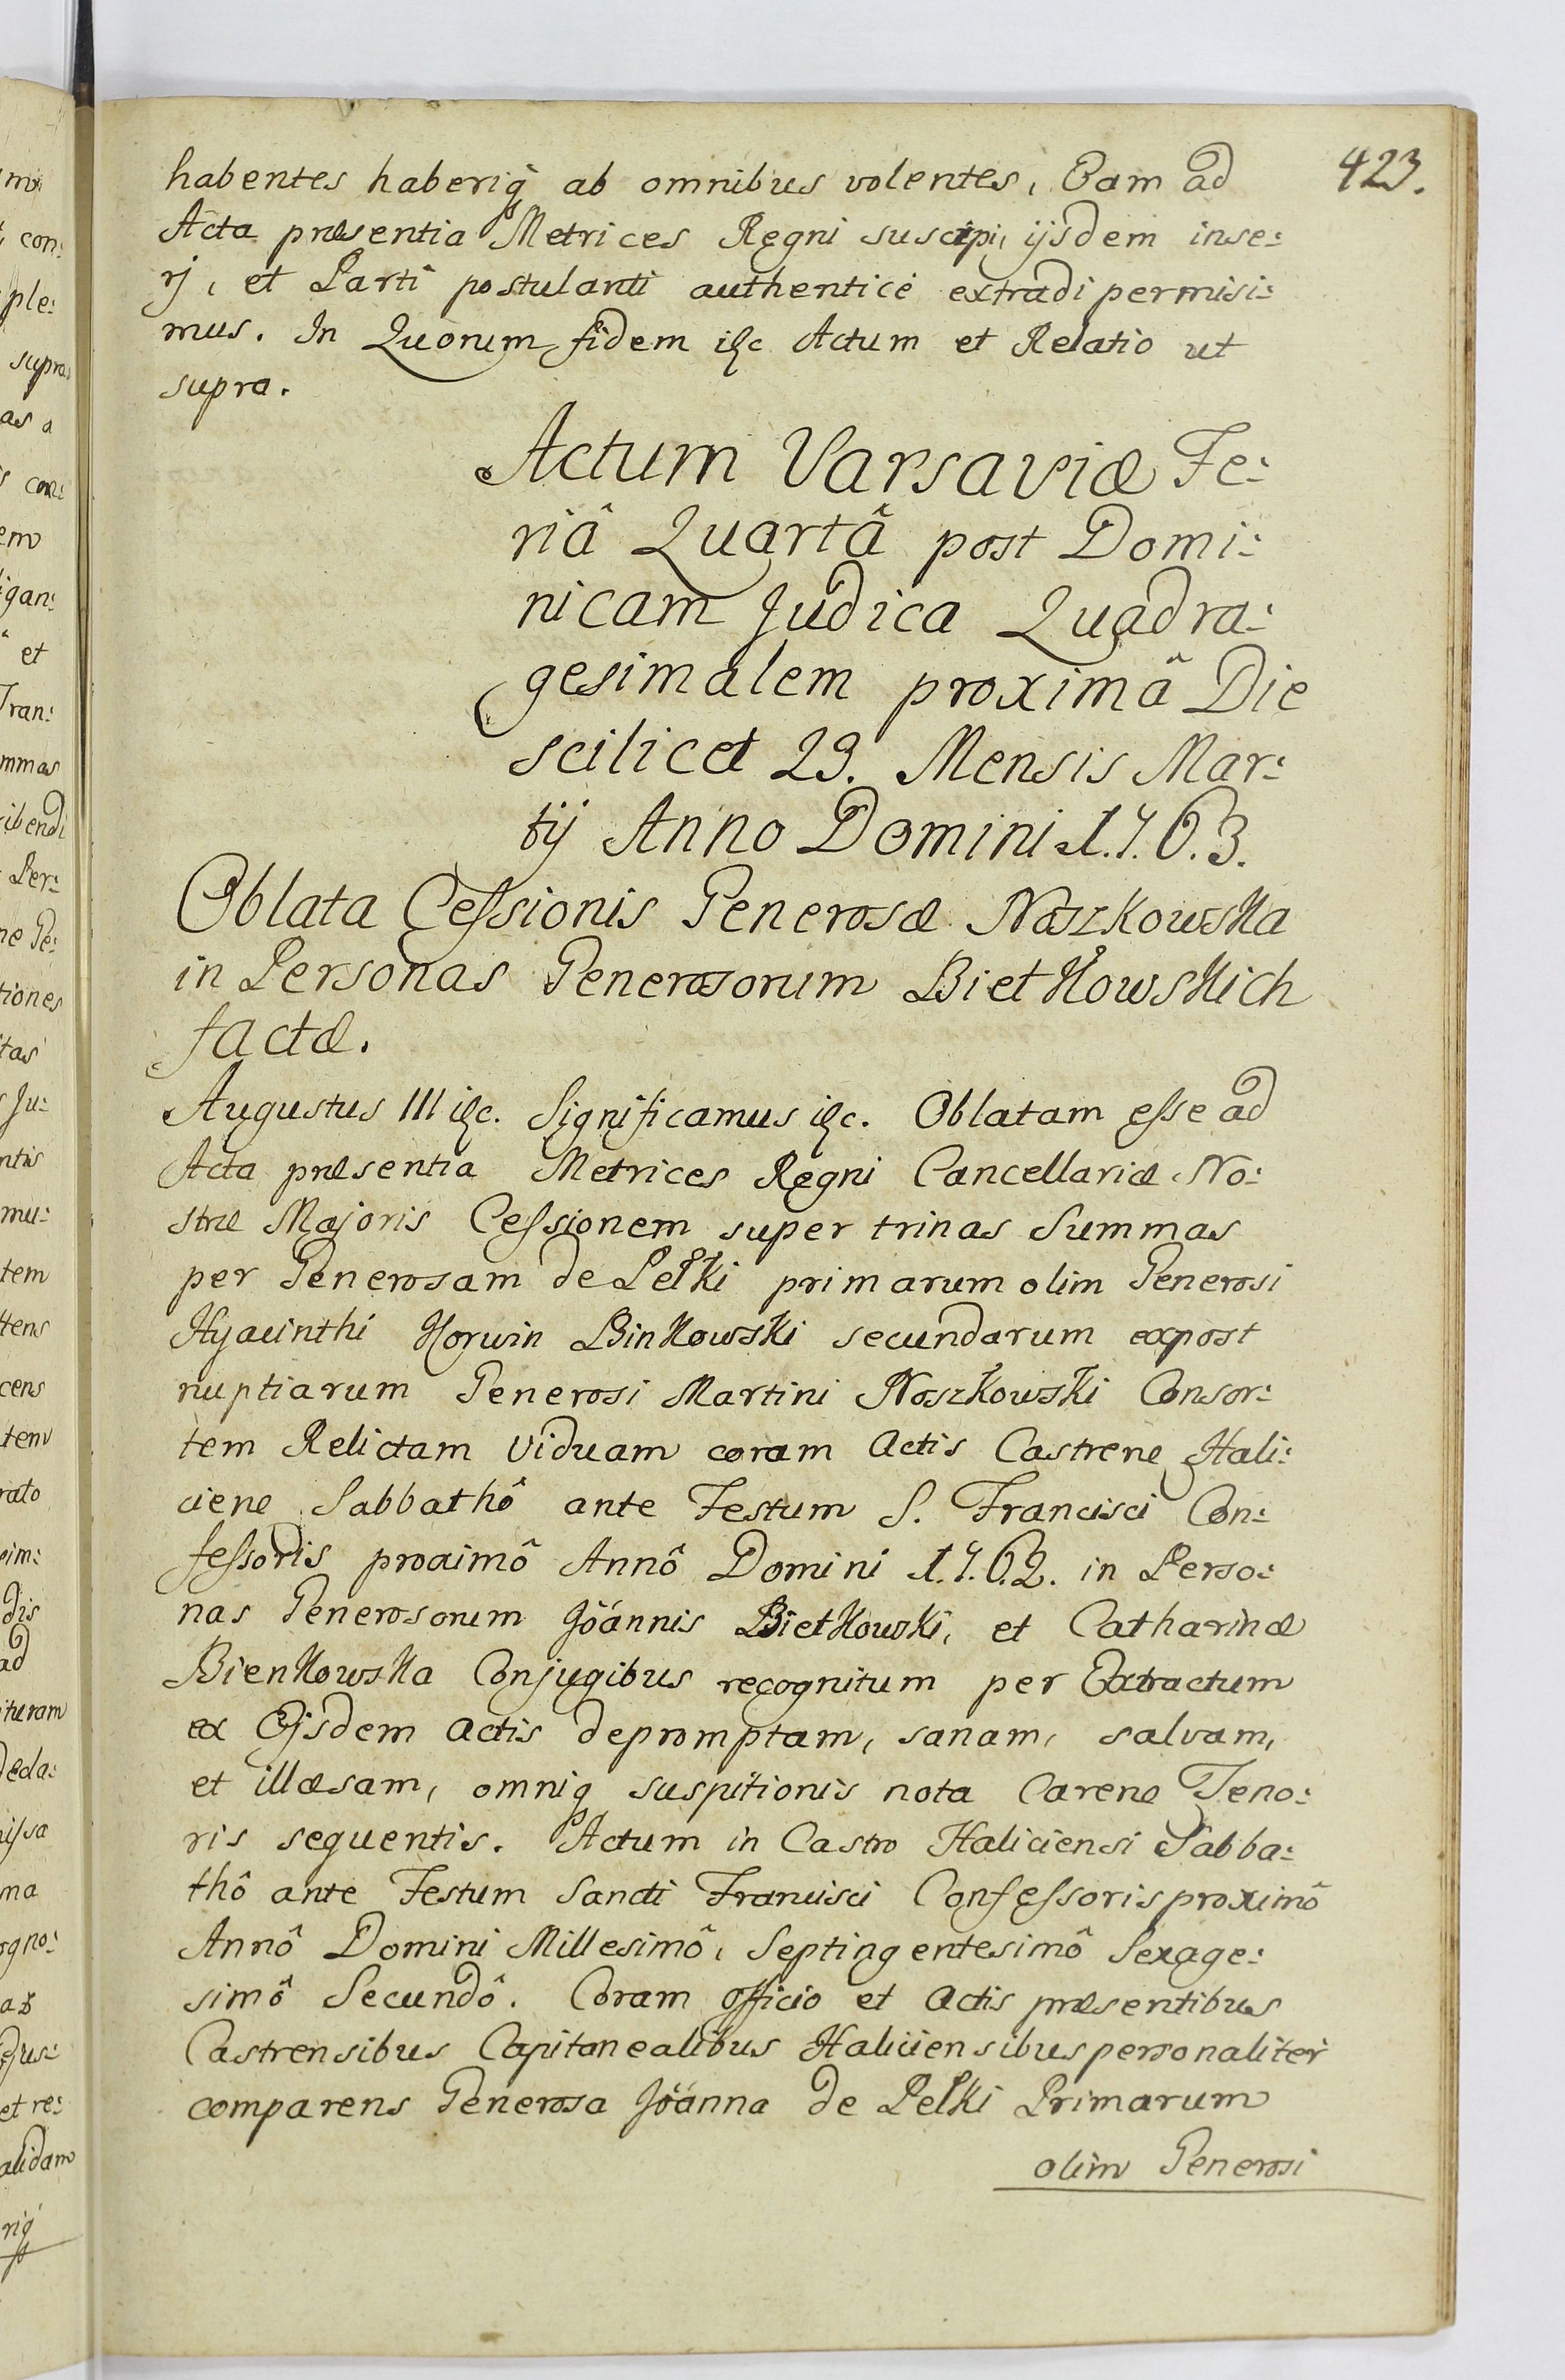 423.
habentes haberiq̃ ab omnibus volentes, Eam ad
Acta præsentia Metrices Regni suscipi, ijsdem inse:
rj, et Parti postulanti authentice extradi permisi:
mus. In Quorum fidem &c Actum et Relatio ut
supra.
Actum Varsaviæ Fe:
riâ Quartâ post Domi:
nicam Judica Quadra:
gesimalem proximâ Die
scilicet 23. Mensis Mar:
tij Anno Domini 1763.
Oblata Cessionis Generosæ Noszkowska
in Personas Generosorum Bietkowskich
factæ.
Augustus III &c. Significamus &c. Oblatam esse ad
Acta præsentia Metrices Regni Cancellariæ No:
stræ Majoris Cessionem super trinas Summas
per Generosam de Pełki primarum olim Generosi
Hyacinthi Korwin Binkowski secundarum expost
nuptiarum Generosi Martini Noszkowski Consor:
tem Relictam Viduam coram Actis Castrene Hali:
ciene Sabbathô ante Festum S. Francisci Con:
fessoris proximô Annô Domini 1762. in Perso:
nas Generosorum Joannis Bietkowski, et Catharinæ
Bienkowska Conjugibus recognitum per Extractum
ex Ejsdem Actis depromptam, sanam, salvam,
et illæsam, omniq̃ suspitionis nota Carene Teno:
ris sequentis. Actum in Castro Haliciensi Sabba:
thô ante Festum Sancti Francisci Confessoris proximô
Annô Domini Millesimô, Septingentesimô Sexage:
simô Secundô. Coram Officio et Actis præsentibus
Castrensibus Capitanealibus Haliciensibus personaliter
comparens Generosa Joanna de Pełki Primarum
olim Generosi